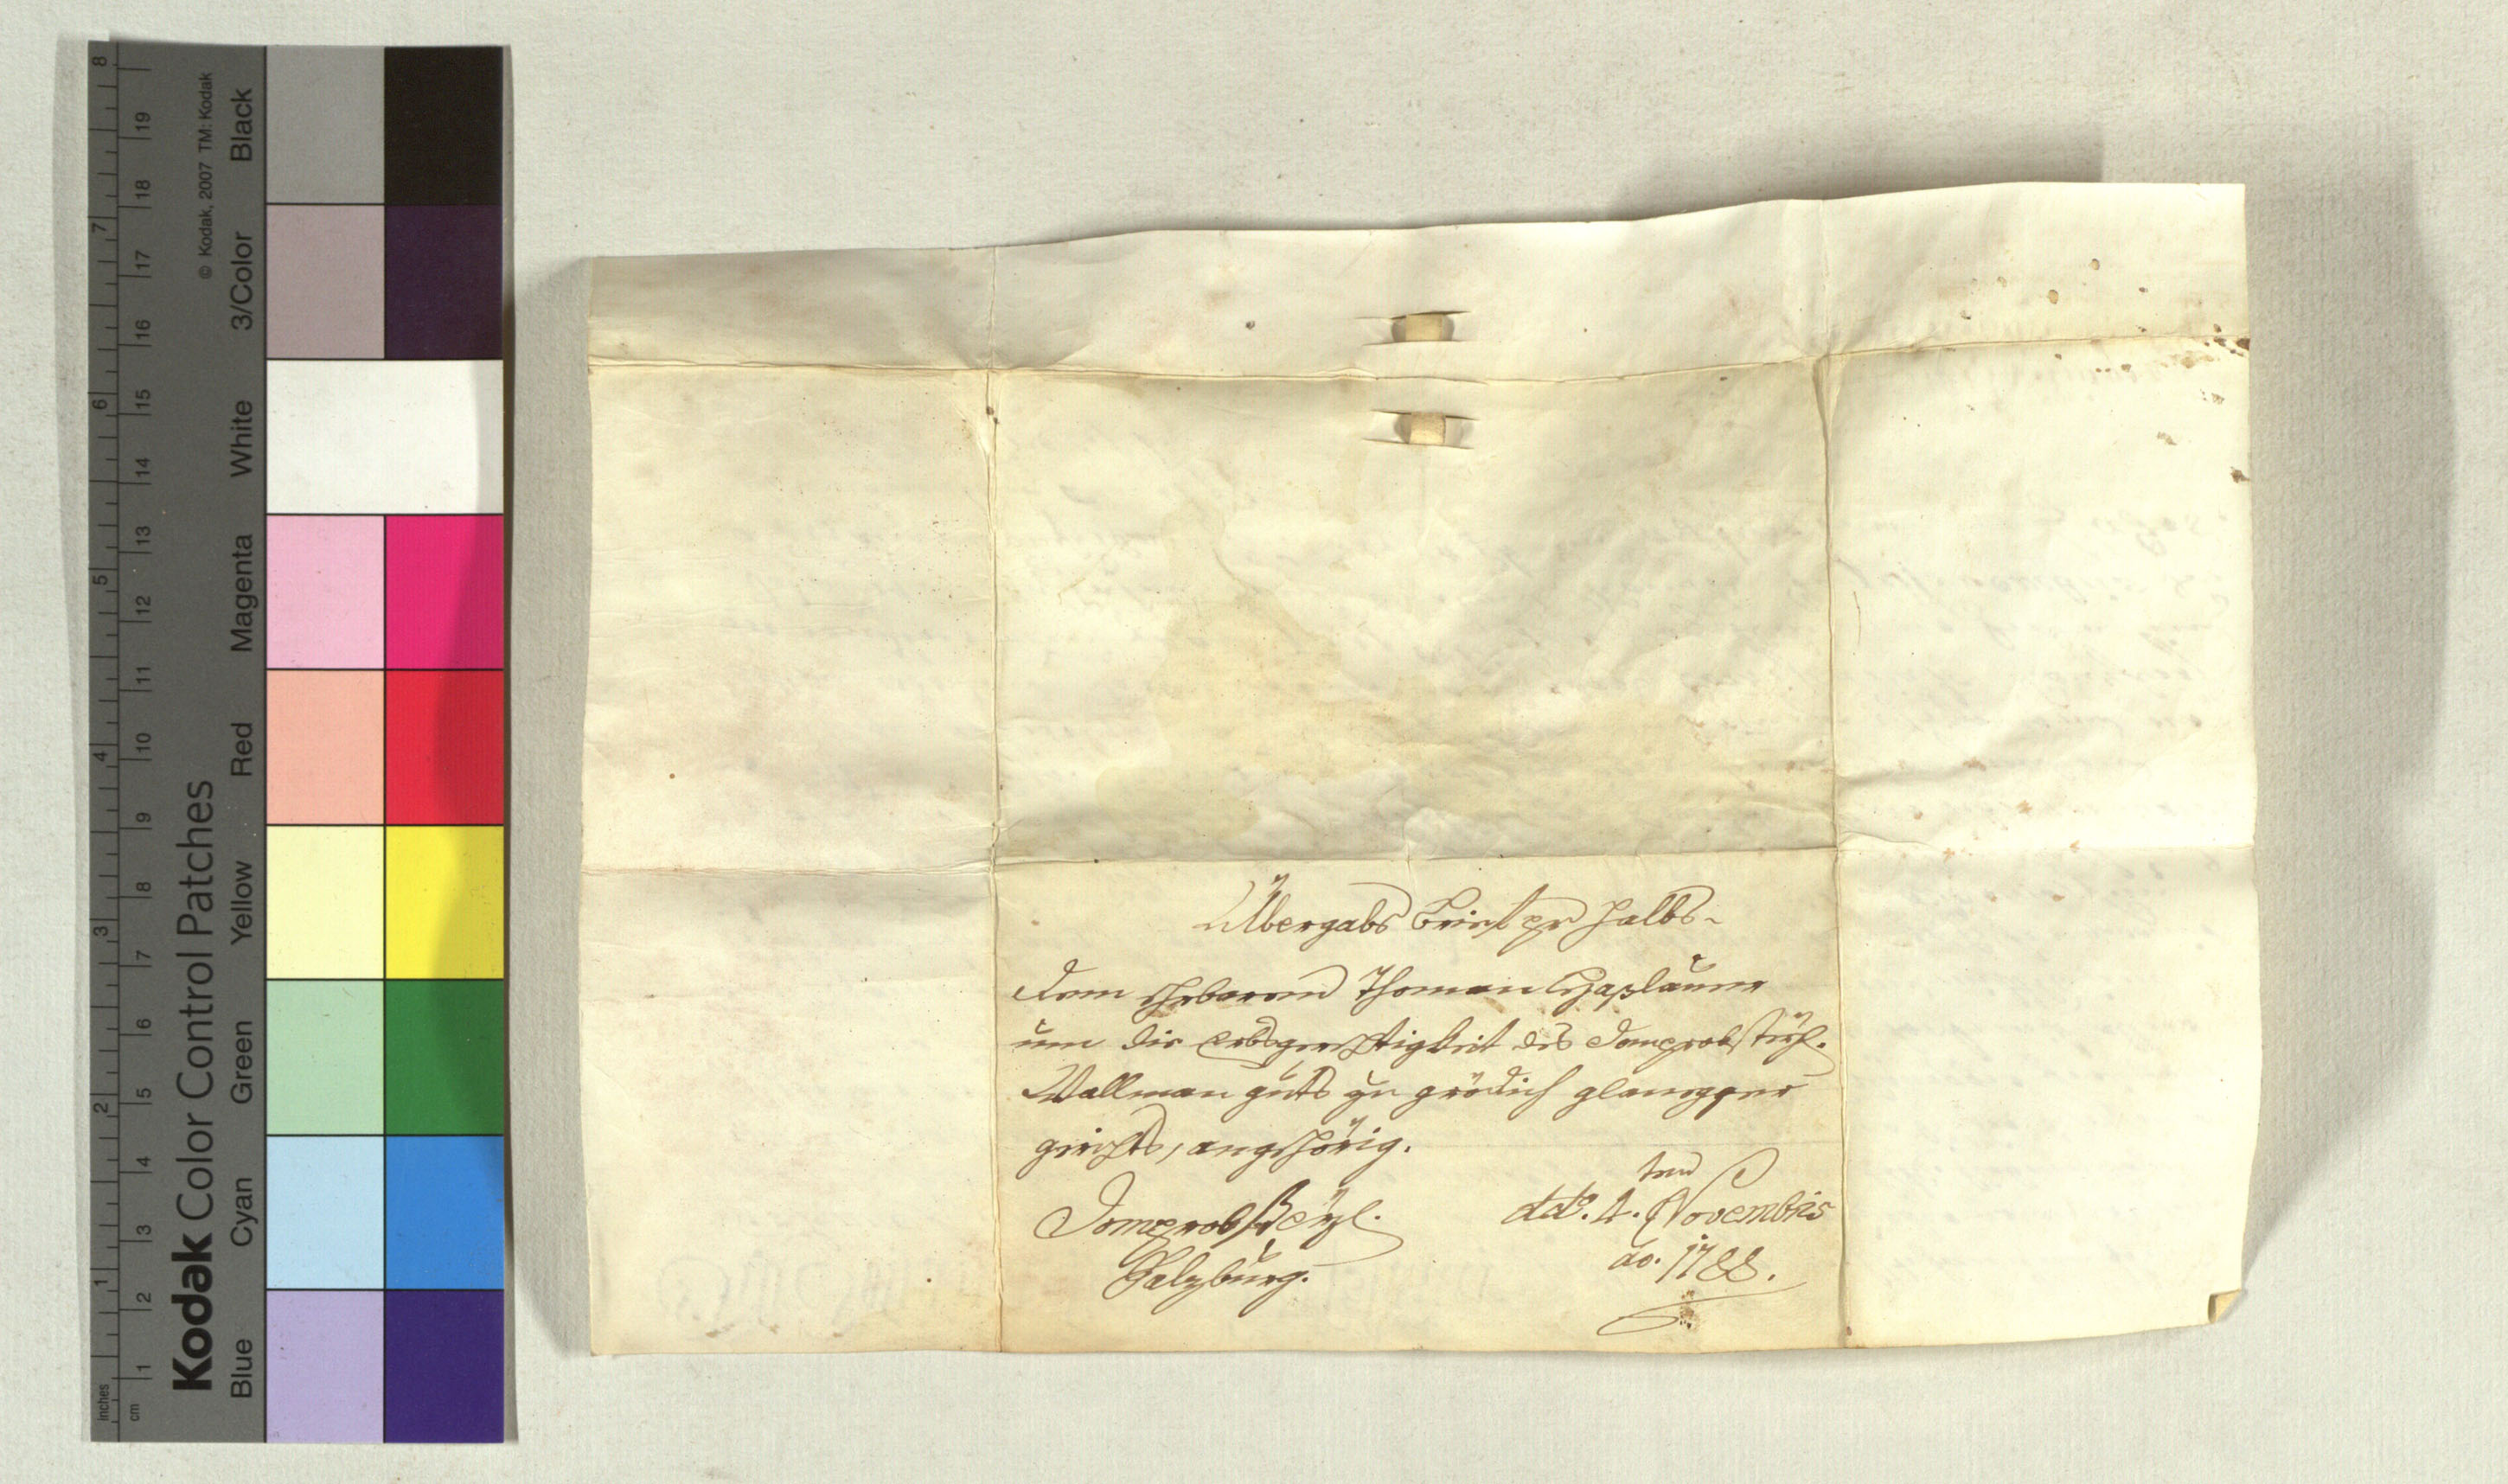 Übergabs Brief pr Halbs-
dem Ehrbaren Thoman
um die Erbsgerechtigkeit des Domprobsteyl.
Wallman guts zu grödich glanegger
grichts, angehörig.
Domprobsteyl.
Salzburg.
ten
ddo. 4. Novembris
ao. 1788.
Kodak Color Control Patches
© Kodak, 2007 TM: Kodak
Blue Cyan Green Yellow Red Magenta White 3/Color Black
inches 1 2 3 4 5 6 7 8
cm 1 2 3 4 5 6 7 8 9 10 11 12 13 14 15 16 17 18 19